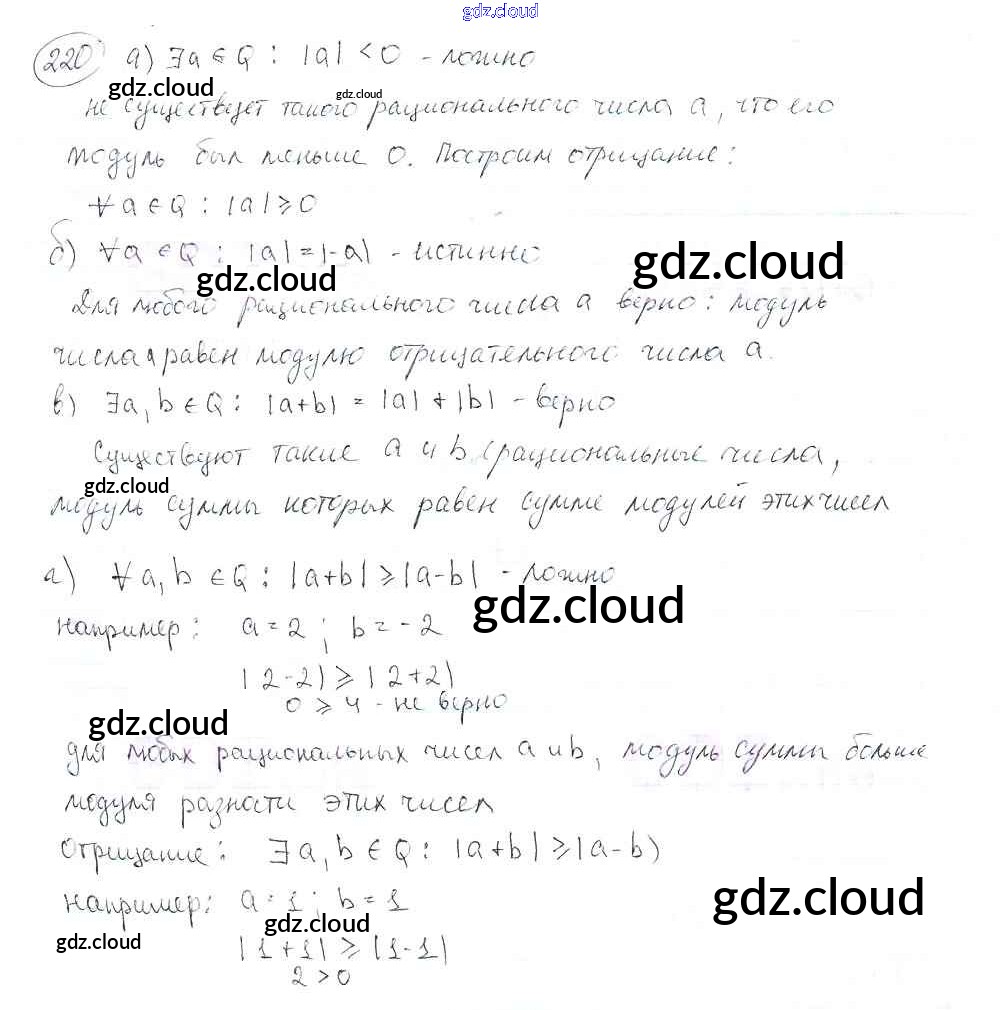 gdz.cloud
220 а) ∃a ∈ Q : |a| < 0 - ложно
gdz.cloud gdz.cloud
не существует такого рационального числа a, что его
модуль был меньше 0. Построим отрицание:
∀a ∈ Q : |a| ⩾ 0
б) ∀a ∈ Q : |a| = |-a| - истинно
gdz.cloud gdz.cloud
Для любого рационального числа a верно: модуль
числа a равен модулю отрицательного числа a.
в) ∃a, b ∈ Q : |a+b| = |a| + |b| - верно
Существуют такие a и b (рациональные числа,
gdz.cloud
модуль суммы которых равен сумме модулей этих чисел
г) ∀a, b ∈ Q : |a+b| ⩾ |a-b| - ложно
gdz.cloud
например: a = 2 ; b = -2
|2-2| ⩾ |2+2|
0 ⩾ 4 - не верно
gdz.cloud
для любых рациональных чисел a и b, модуль суммы больше
модуля разности этих чисел
Отрицание: ∃a, b ∈ Q : |a+b| ⩾ |a-b|
например: a = 1 ; b = 1
gdz.cloud
gdz.cloud gdz.cloud
|1+1| ⩾ |1-1|
2 > 0